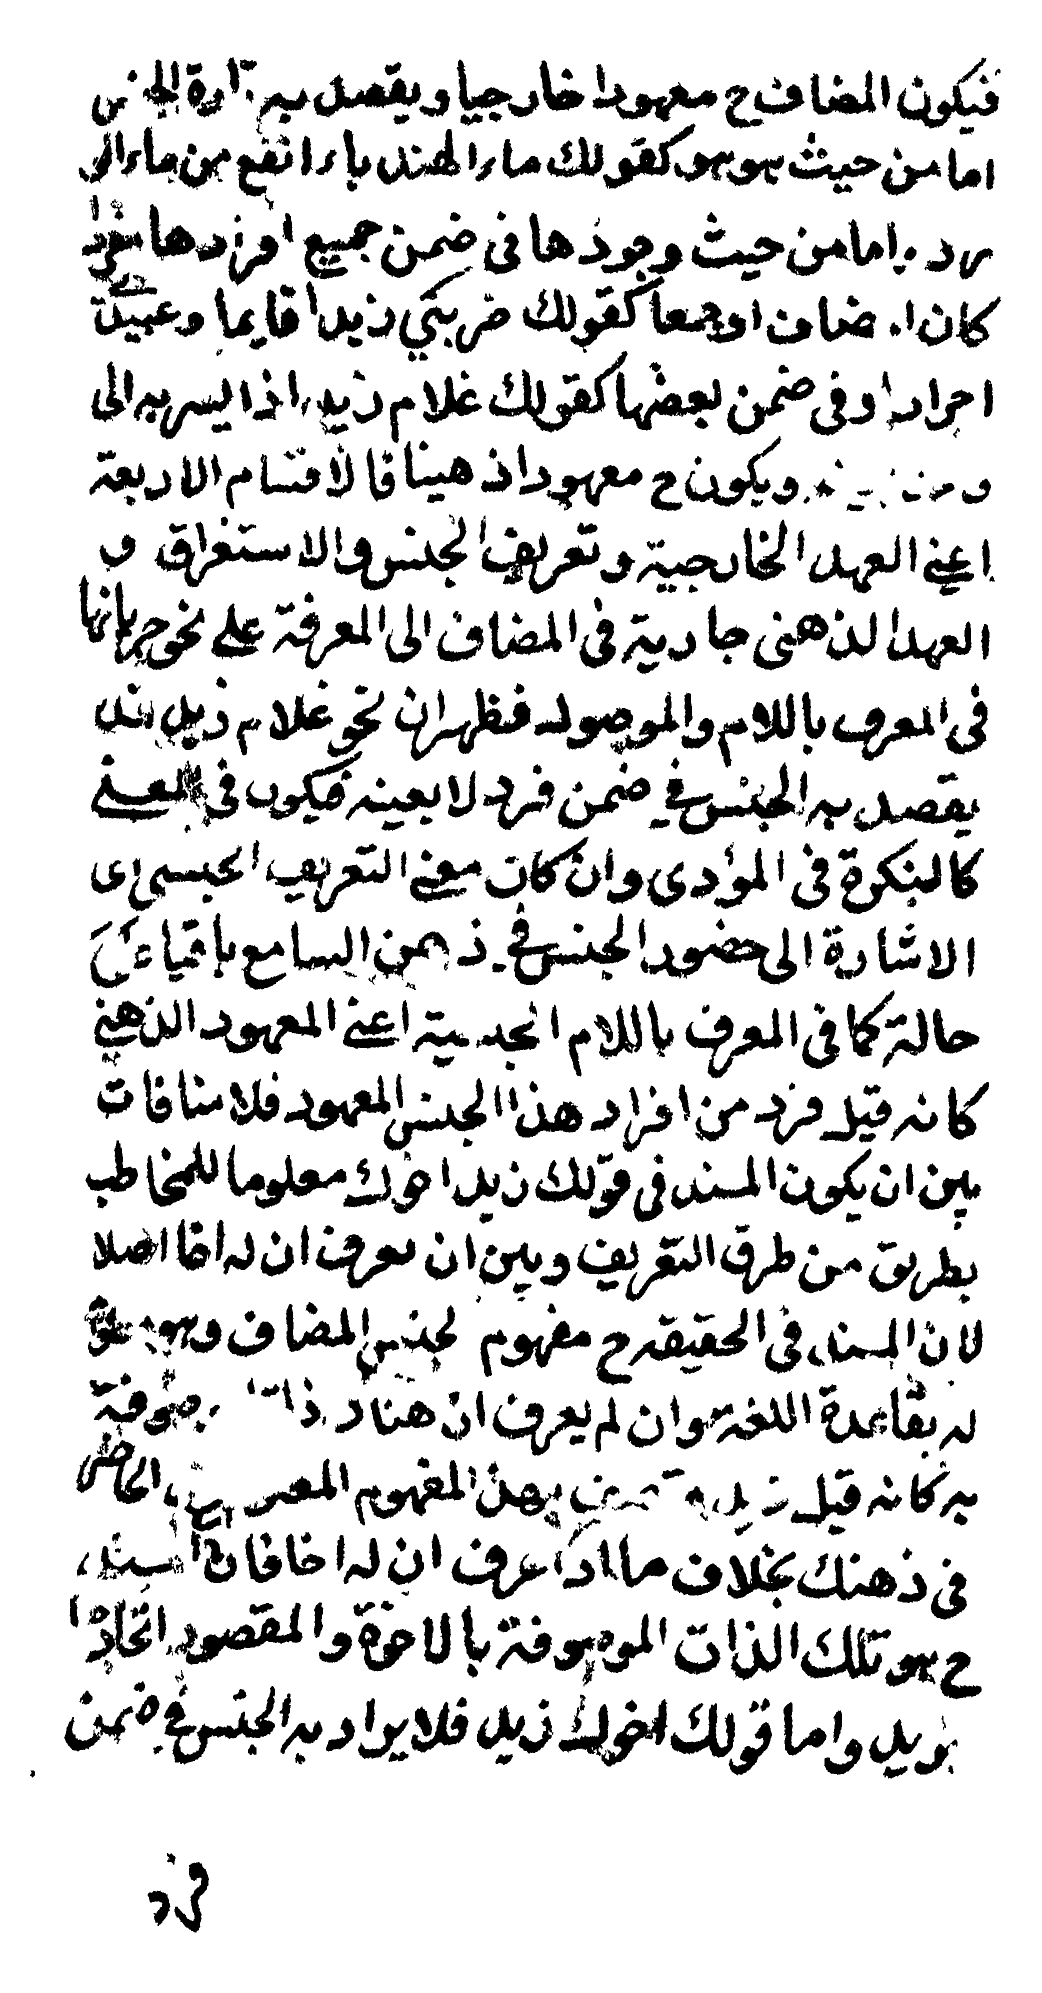 فيكون المضاف ح معهودا خارجيا ويقصد به تارة الجنس
اما من حيث هو هو كقولك ماء الهندباء انفع من ماء
واما من حيث وجودها في ضمن جميع افرادها مفردا
كان المضاف او جمعا كقولك ضربي زيدا قايما وعبيدي
احرار او في ضمن بعضها كقولك غلام زيد اذا لم يشر به الى
ويكون ح معهودا ذهنيا فالاقسام الاربعة
اعني العهد الخارجية وتعريف الجنس والاستغراق و
العهد الذهني جارية في المضاف الى المعرفة على نحو جريانها
في المعرف باللام والموصولة فظهر ان نحو غلام زيد قد
يقصد به الجنس في ضمن فرد لا بعينه فيكون في المعني
كالنكرة في المؤدى وان كان معني التعريف الجنسي اى
الاشارة الى حضور الجنس في ذهن السامع باقياء على
حالة كما في المعرف باللام الجنسية اعني المعهود الذهني
كانه قيل فرد من افراد هذا الجنس المعهود فلا منافات
بين ان يكون المسند في قولك زيد اخوك معلوما للمخاطب
بطريق من طرق التعريف وبين ان يعرف ان له اخا اصلا
لان المسند في الحقيقه ح مفهوم لجنس المضاف وهو معلوم
له بقاعدة اللغة وان لم يعرف ان هناك ذاتا موصوفة
به كانه قيل زيد متصف بهذا المفهوم المعين الحاضر
في ذهنك بخلاف ما اذا عرف ان له اخا فان المسند
ح هو تلك الذات الموصوفة بالاخوة والمقصود اتحادها
بزيد واما قولك اخوك زيد فلا يراد به الجنس في ضمن
فرد